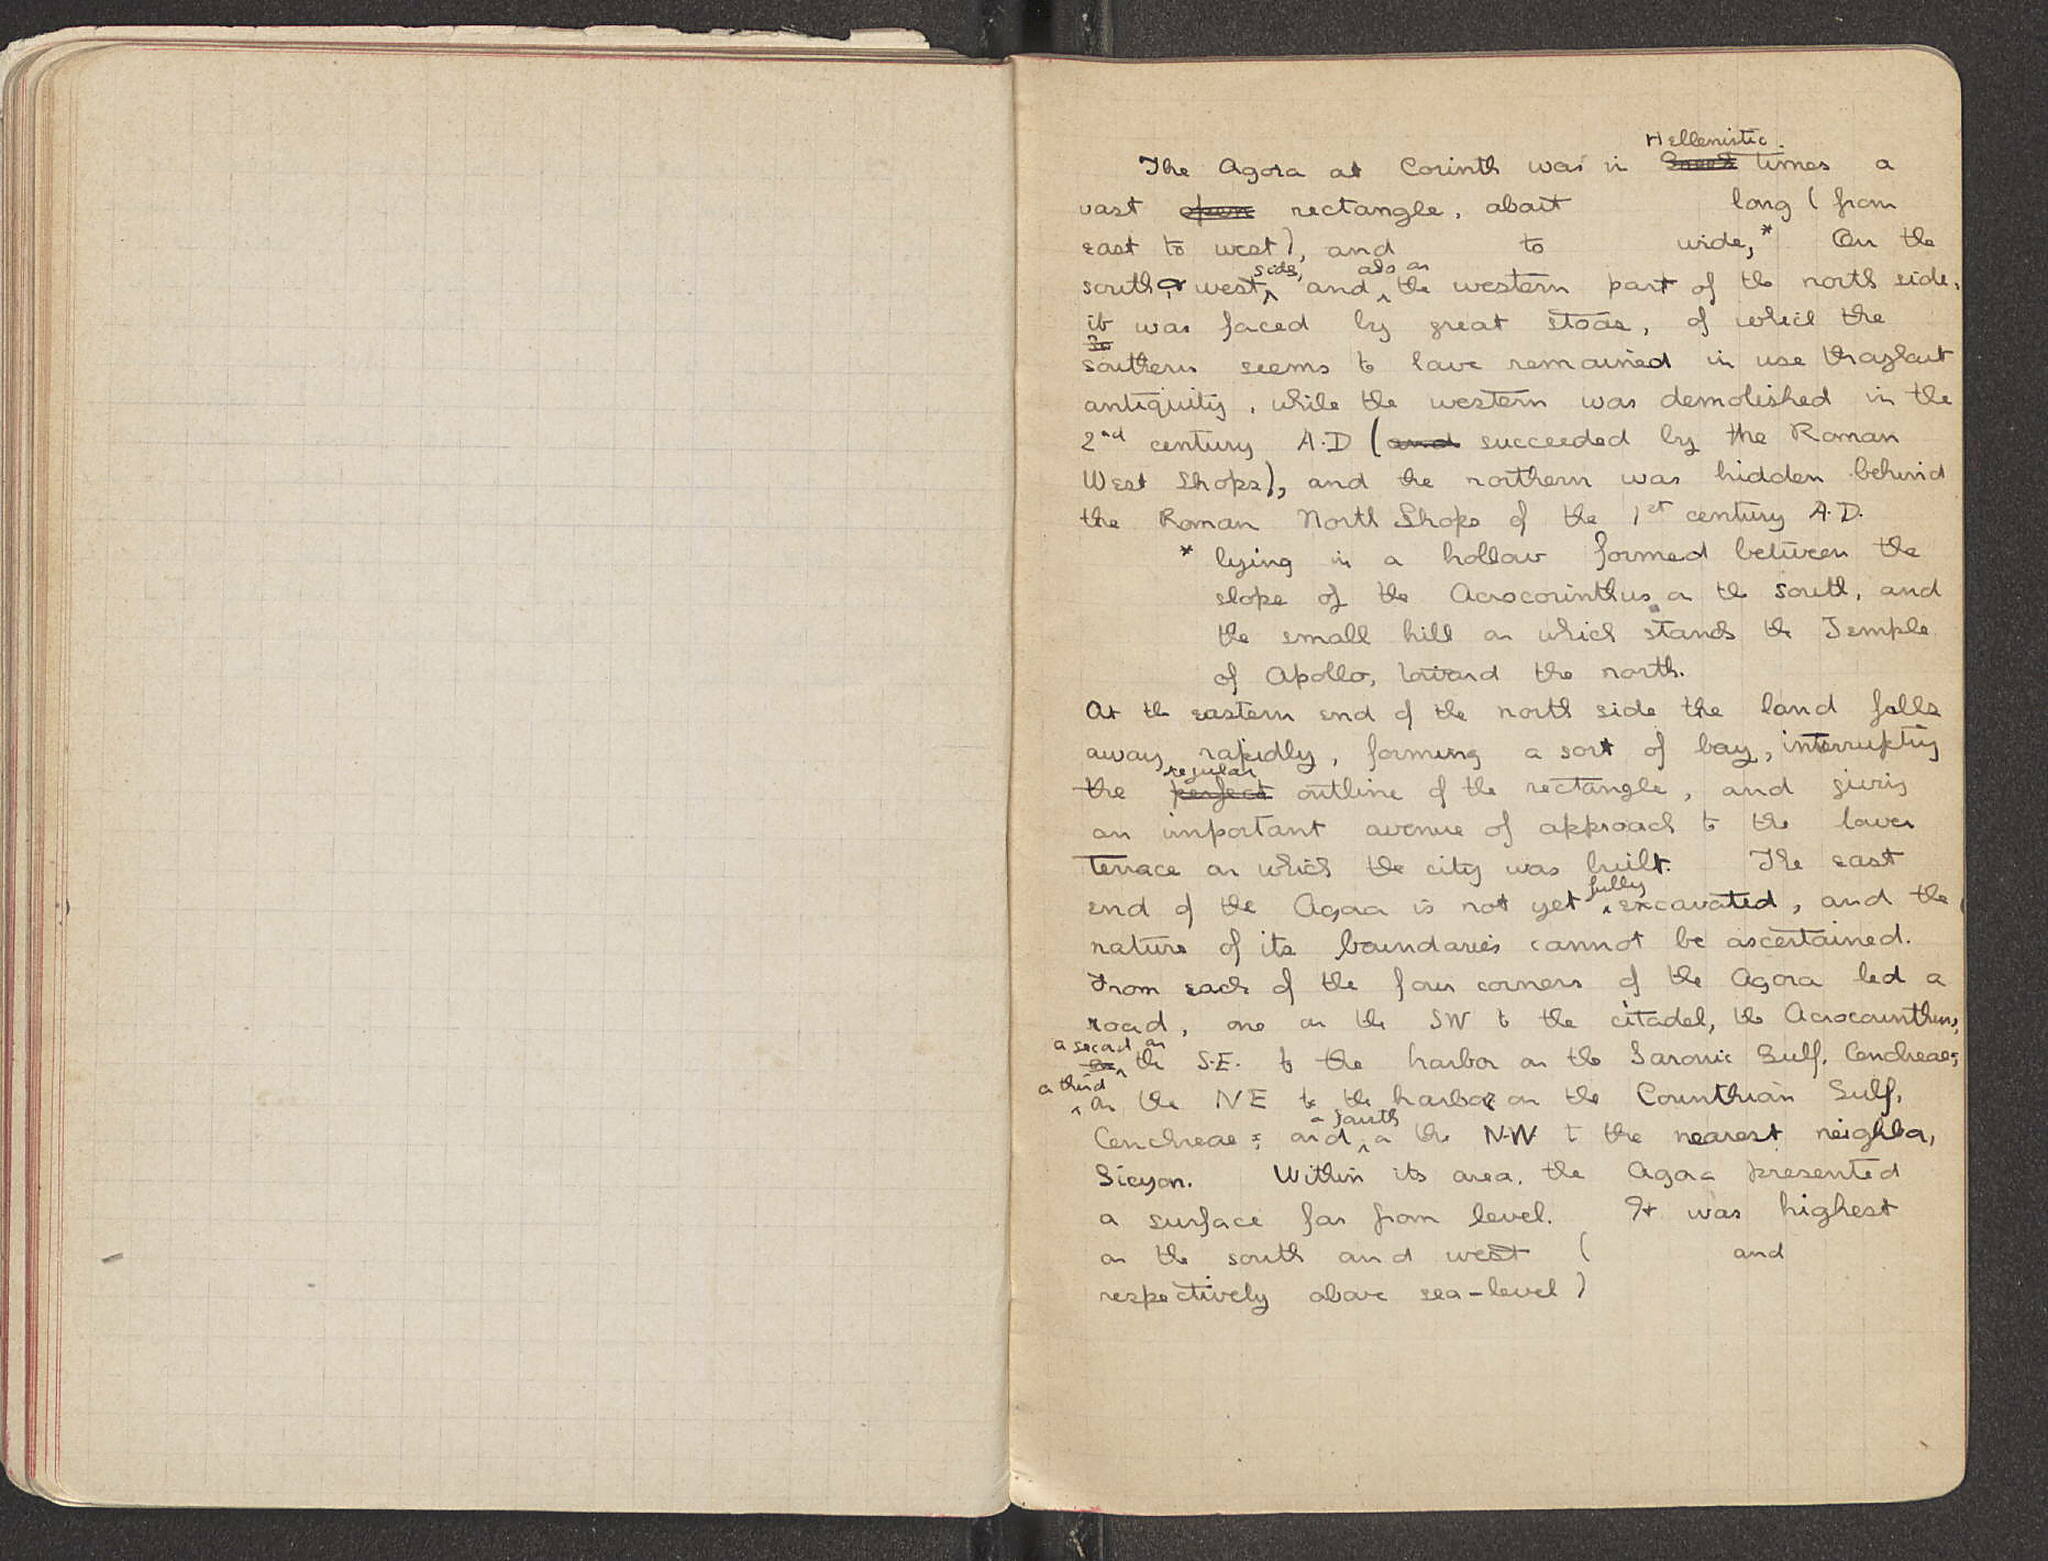 Hellenistic
The Agora at Corinth was in Greek times a
vast open rectangle, about long (from
east to west), and to wide,* On the
side, also on
south, & west, and the western part of the north side,
it was faced by great stoas, of which the
southern seems to have remained in use throughout
antiquity, while the western was demolished in the
2nd century A.D (and succeeded by the Roman
West Shops), and the northern was hidden behind
the Roman North Shops of the 1st century A.D.
* lying in a hollow formed between the
slope of the Acrocorinthus on the south, and
the small hill on which stands the Temple
of Apollo, toward the north.
At the eastern end of the north side the land falls
away rapidly, forming a sort of bay, interrupting
regular
the perfect outline of the rectangle, and giving
an important avenue of approach to the lower
terrace on which the city was built. The east
fully
end of the Agora is not yet excavated, and the
nature of its boundaries cannot be ascertained.
From each of the four corners of the Agora led a
road, one on the SW to the citadel, the Acrocorinthus,
a second on
the S.E. to the harbor on the Saronic Gulf, Cenchreae;
a third
on the NE to the harbor on the Corinthian Gulf,
a fourth
Cenchreae; and on the N.W. to the nearest neighbor,
Sicyon. Within its area, the Agora presented
a surface far from level. It was highest
on the south and west ( and
respectively above sea-level)